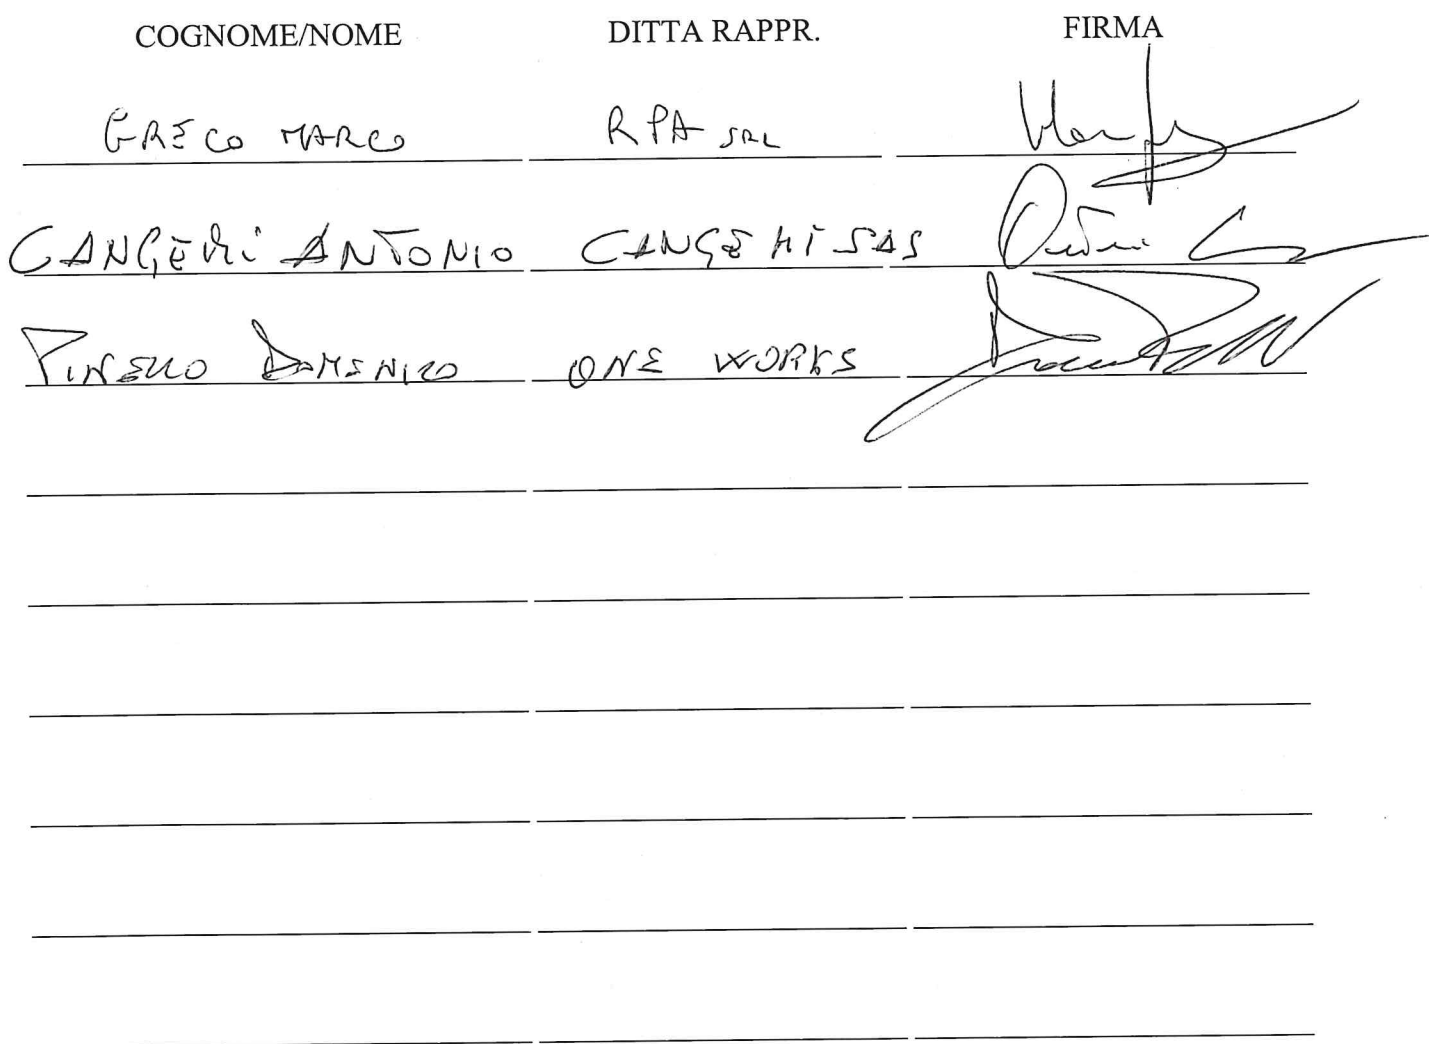 COGNOME/NOME DITTA RAPPR. FIRMA
GRECO MARCO RPA SRL
CANGEMI ANTONIO CANGEMI SAS
PINELLO DOMENICO ONE WORKS